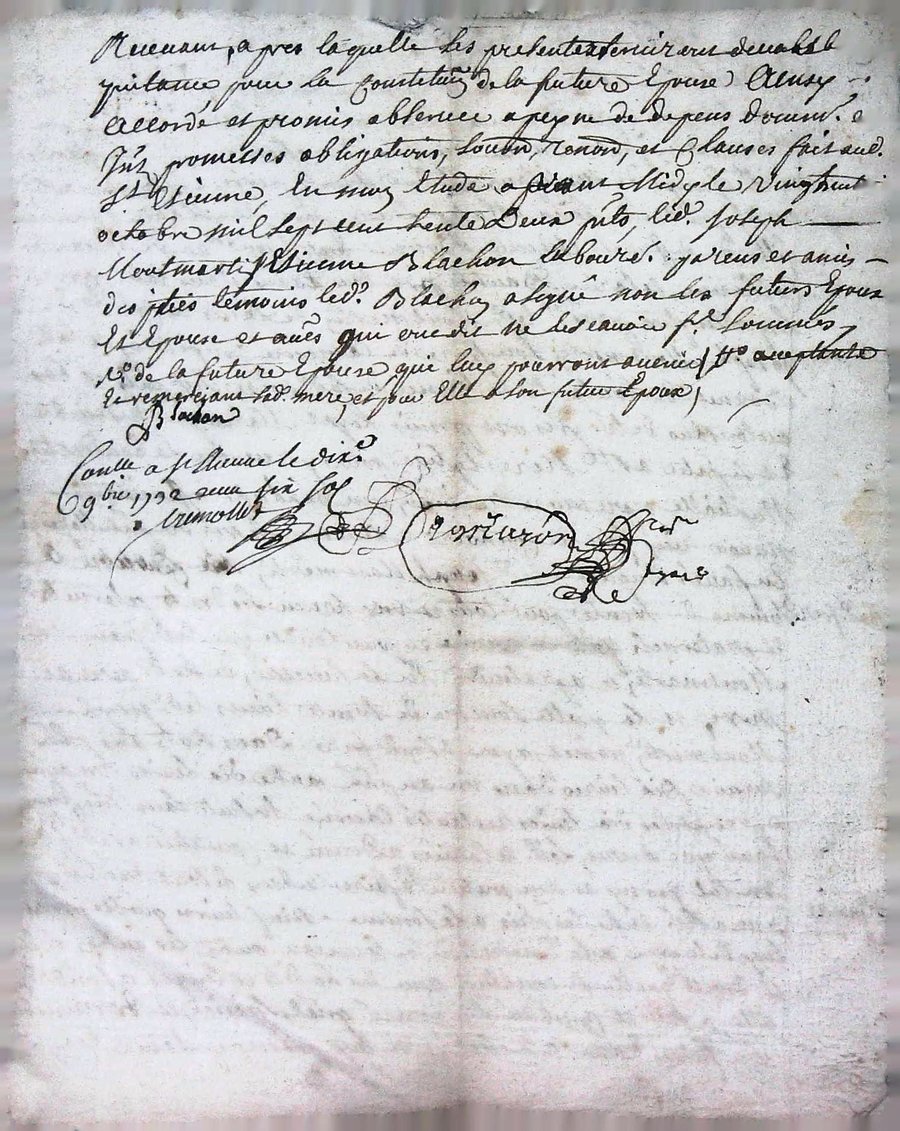 Recevant, apres laquelle les presentes serviront de valable
quitance pour la Constitun de la future Epouse Ainsy
Accordé et promis observer a peyne de depens domm.
Intz promesses obligations, soumn, renon, et Clauses fait aud.
St Etienne, En mon Etude avant Midy le vingt huit
octobre mil sept cent trente deux pnts, led. Joseph
Montmartin Etienne Blachon labour. parens et amis
des pties temoins led. Blachon a signé non les futurs Epoux
Et Epouse et autres qui ont dit ne scavoir
de la future Epouse qui luy pourront avenir acceptante
Et remerciant sad. mere, et pour Elle a son futur Epoux,
Blachon
Conlle a St Etienne le dix
9bre 1732 six sols